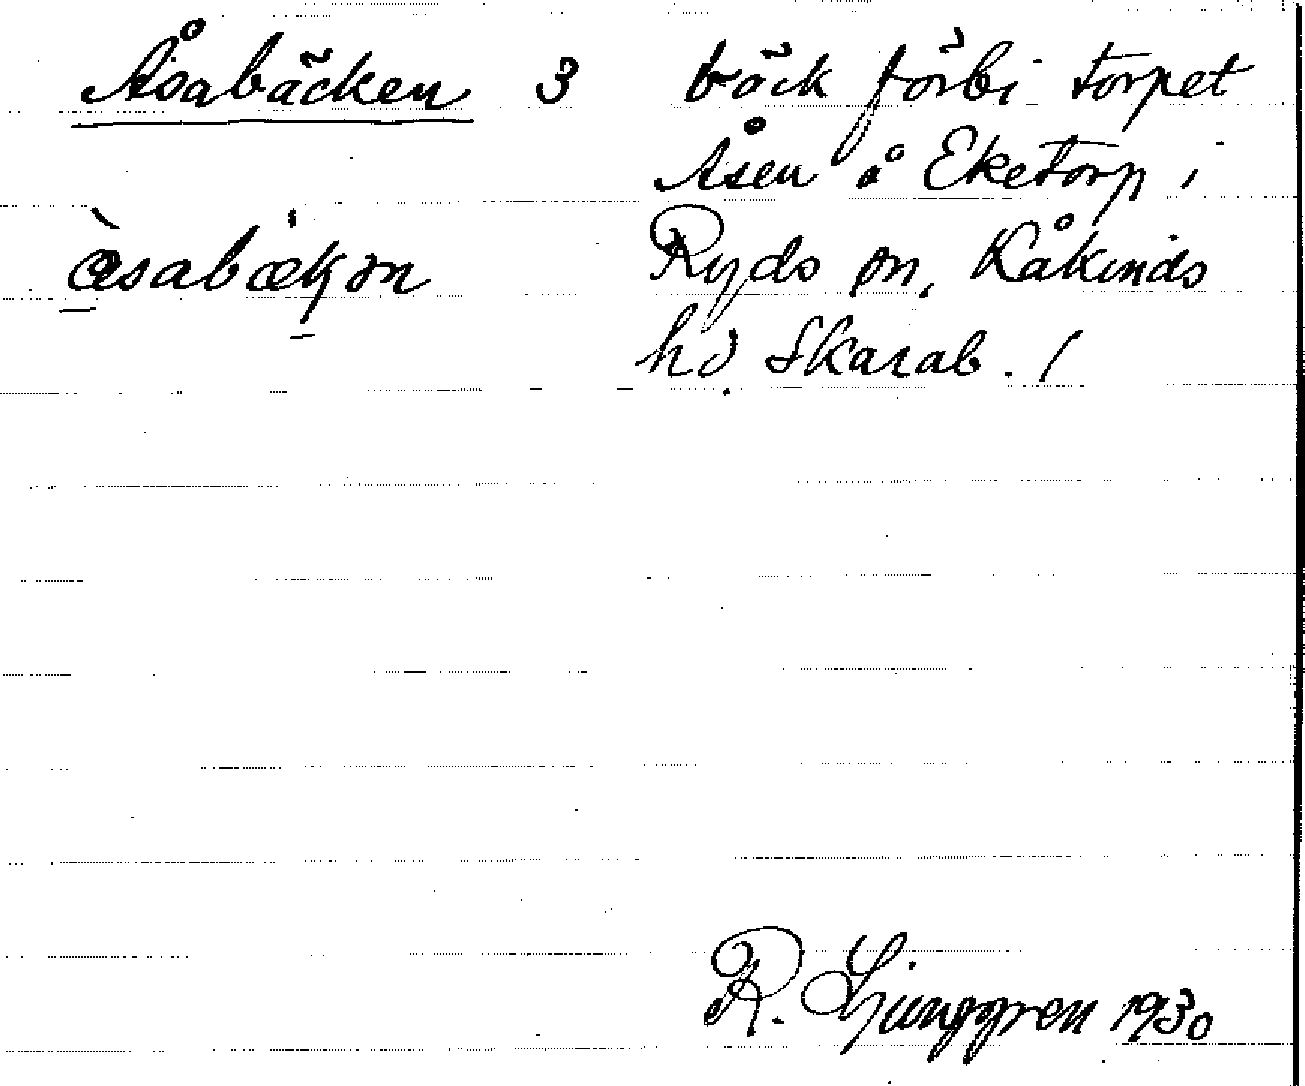 Åsabäcken 3 bäck förbi torpet
Åsen å Eketorp i
Ryds sn, Kåkinds
hd Skarab. l
R. Ljunggren 1930